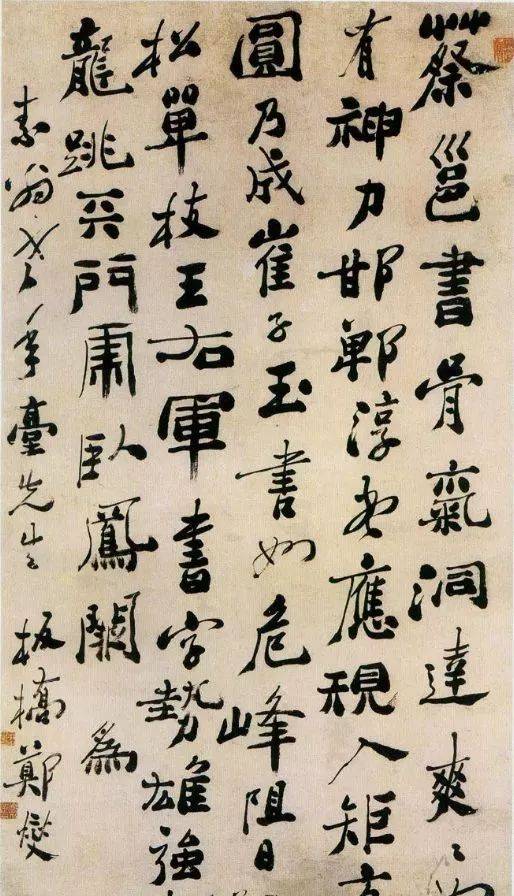 蔡邕書骨氣洞達爽〻
有神力邯鄲淳書應規入矩方
圓乃成崔子玉書如危峰阻日
松單枝王右軍書字勢雄強
龍跳天門虎臥鳳闕 為
素翁老年臺先生 板橋鄭燮